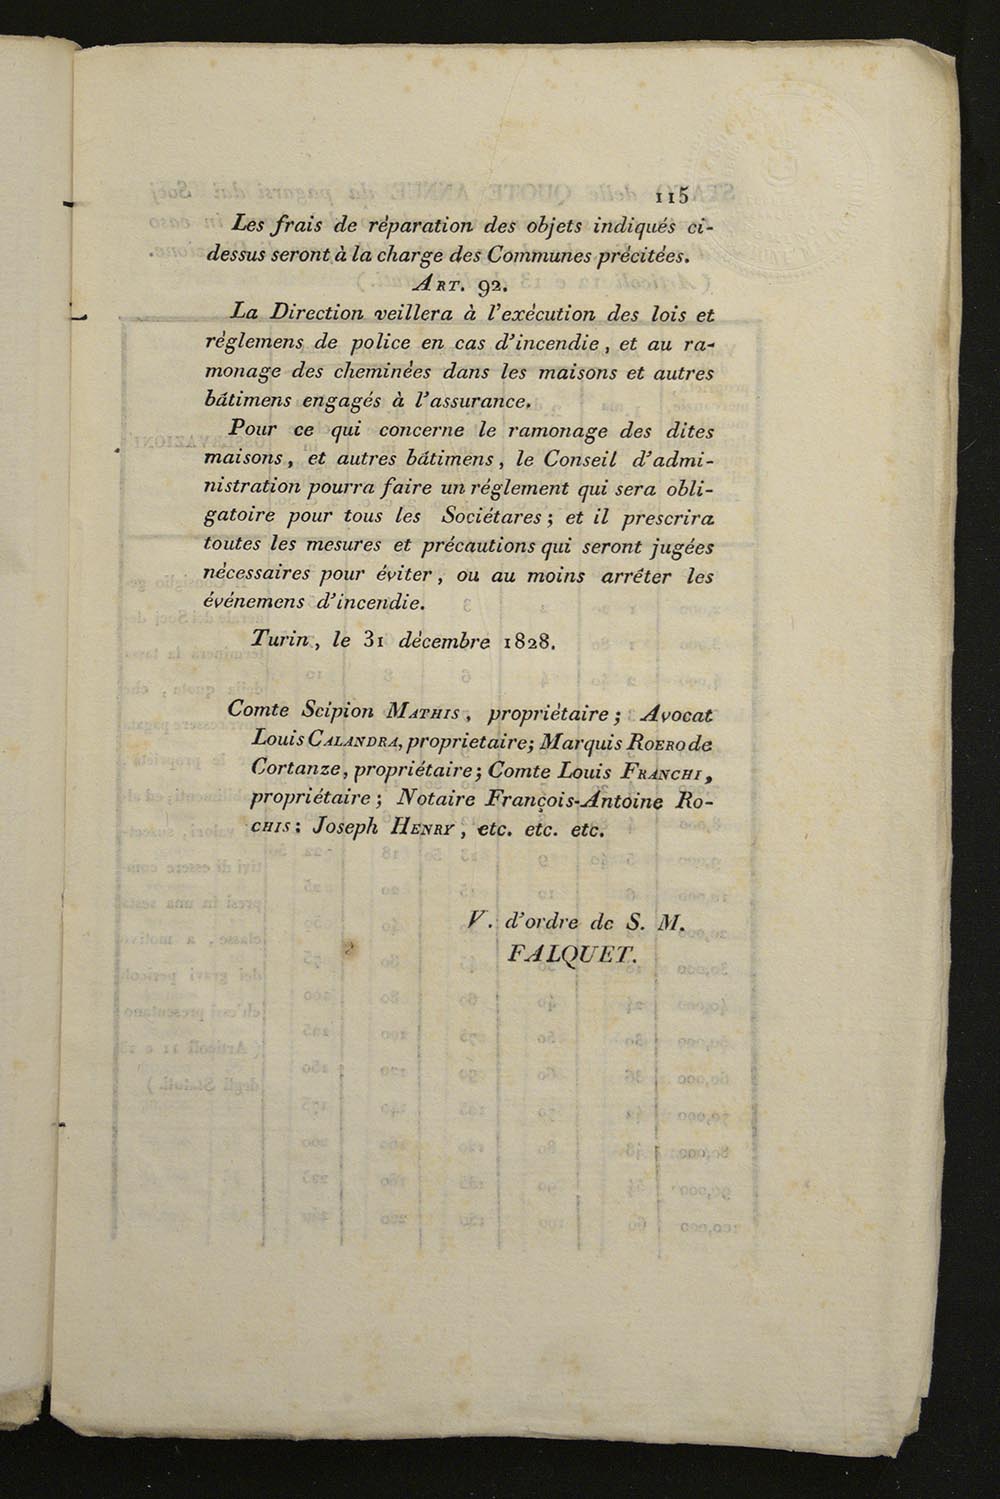 115
Les frais de réparation des objets indiqués ci-
dessus seront à la charge des Communes précitées.
ART. 92.
La Direction veillera à l'exécution des lois et
règlemens de police en cas d'incendie, et au ra-
monage des cheminées dans les maisons et autres
bâtimens engagés à l'assurance.
Pour ce qui concerne le ramonage des dites
maisons, et autres bâtimens, le Conseil d'admi-
nistration pourra faire un réglement qui sera obli-
gatoire pour tous les Sociétares; et il prescrira
toutes les mesures et précautions qui seront jugées
nécessaires pour éviter, ou au moins arrêter les
événemens d'incendie.
Turin, le 31 décembre 1828.
Comte Scipion MATHIS, propriétaire; Avocat
Louis CALANDRA, proprietaire; Marquis ROERO de
Cortanze, propriétaire; Comte Louis FRANCHI,
propriétaire; Notaire François-Antoine RO-
CHIS; Joseph HENRY, etc. etc. etc.
V. d'ordre de S. M.
FALQUET.